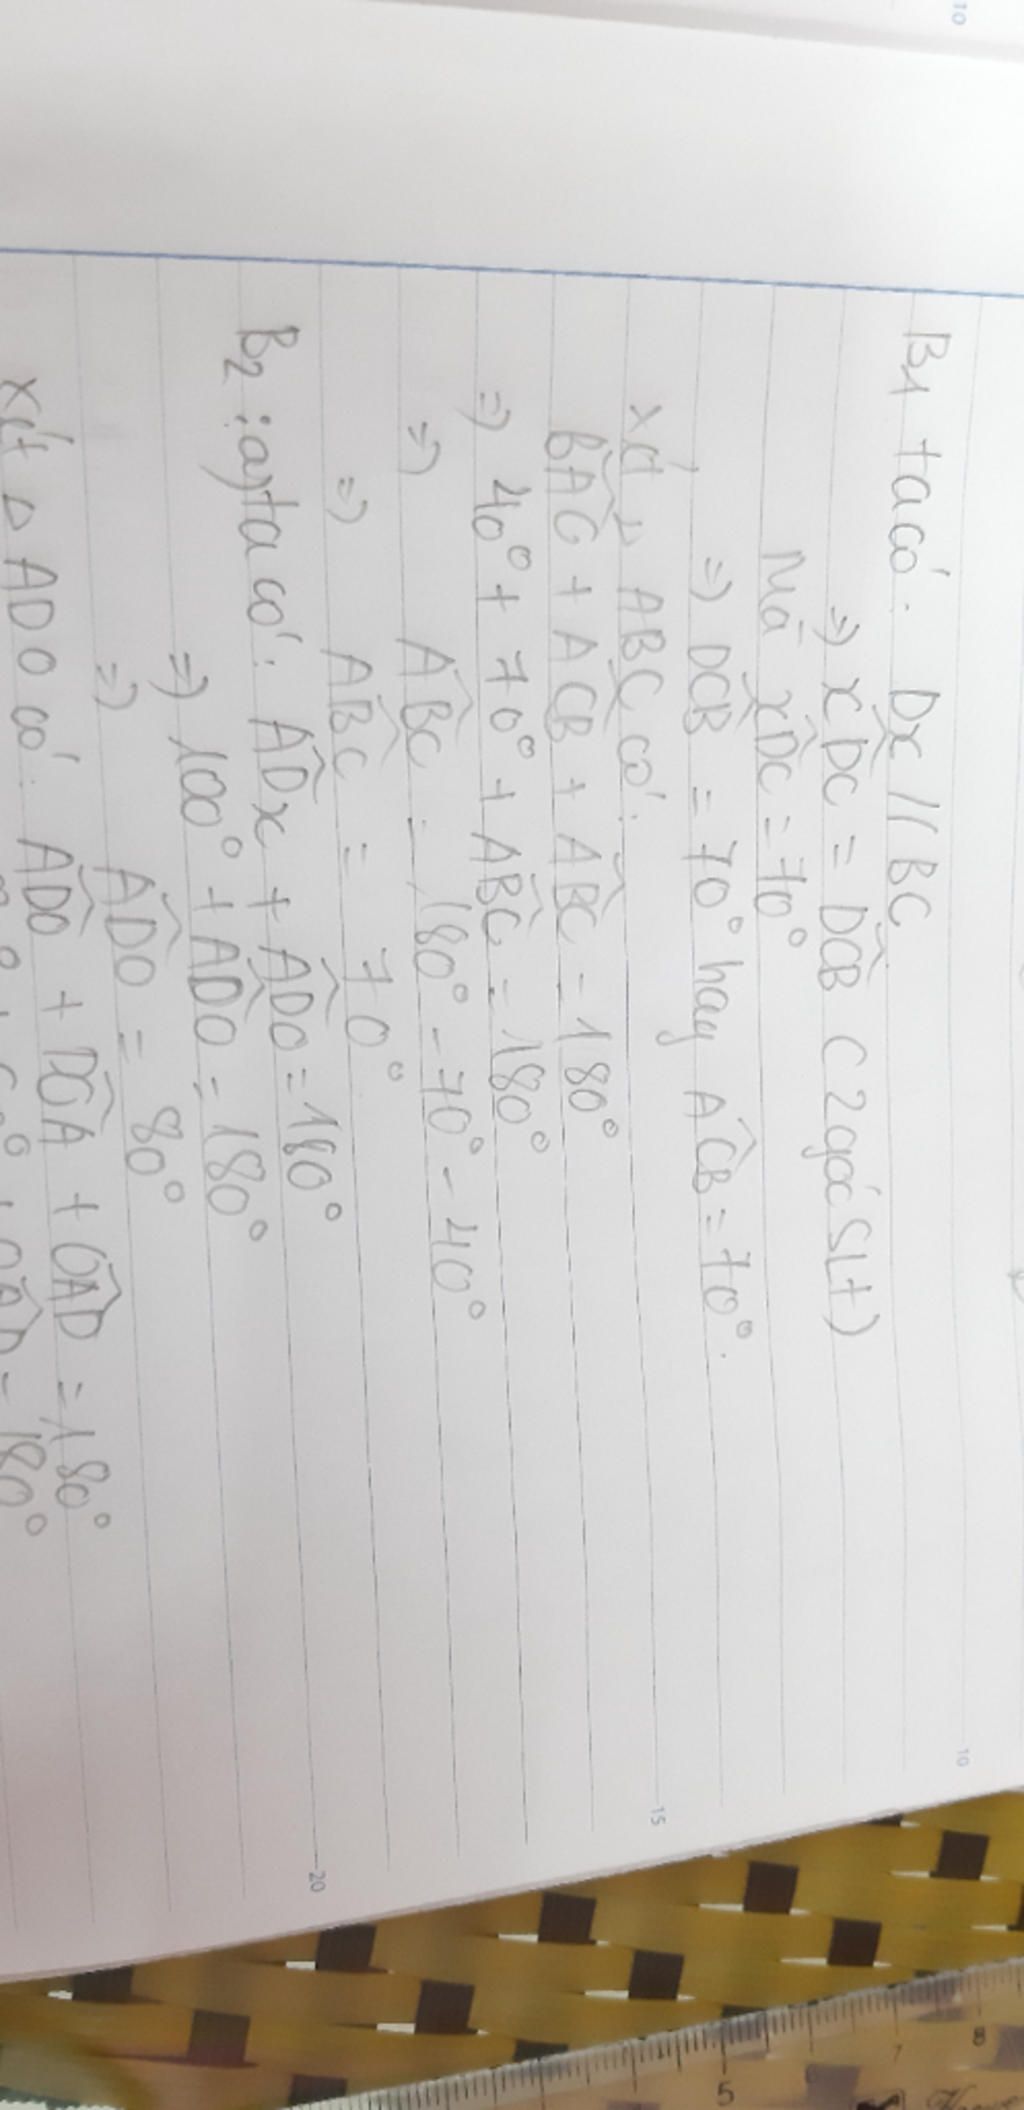 B1 ta có: Dx // BC
=> xD̂C = DĈB ( 2 góc SLt)
Mà xD̂C = 70°
=> DĈB = 70° hay AĈB = 70°.
xét △ ABC có:
BÂC + AĈB + AB̂C = 180°
=> 40° + 70° + AB̂C = 180°
=> AB̂C = 180° - 70° - 40°
=> AB̂C = 70°
B2 : a) ta có: AD̂x + AD̂O = 180°
=> 100° + AD̂O = 180°
=> AD̂O = 80°
xét △ ADO có: AD̂O + DÔA + OÂD = 180°
= 180°
10
10
15
20
5
6
7
8